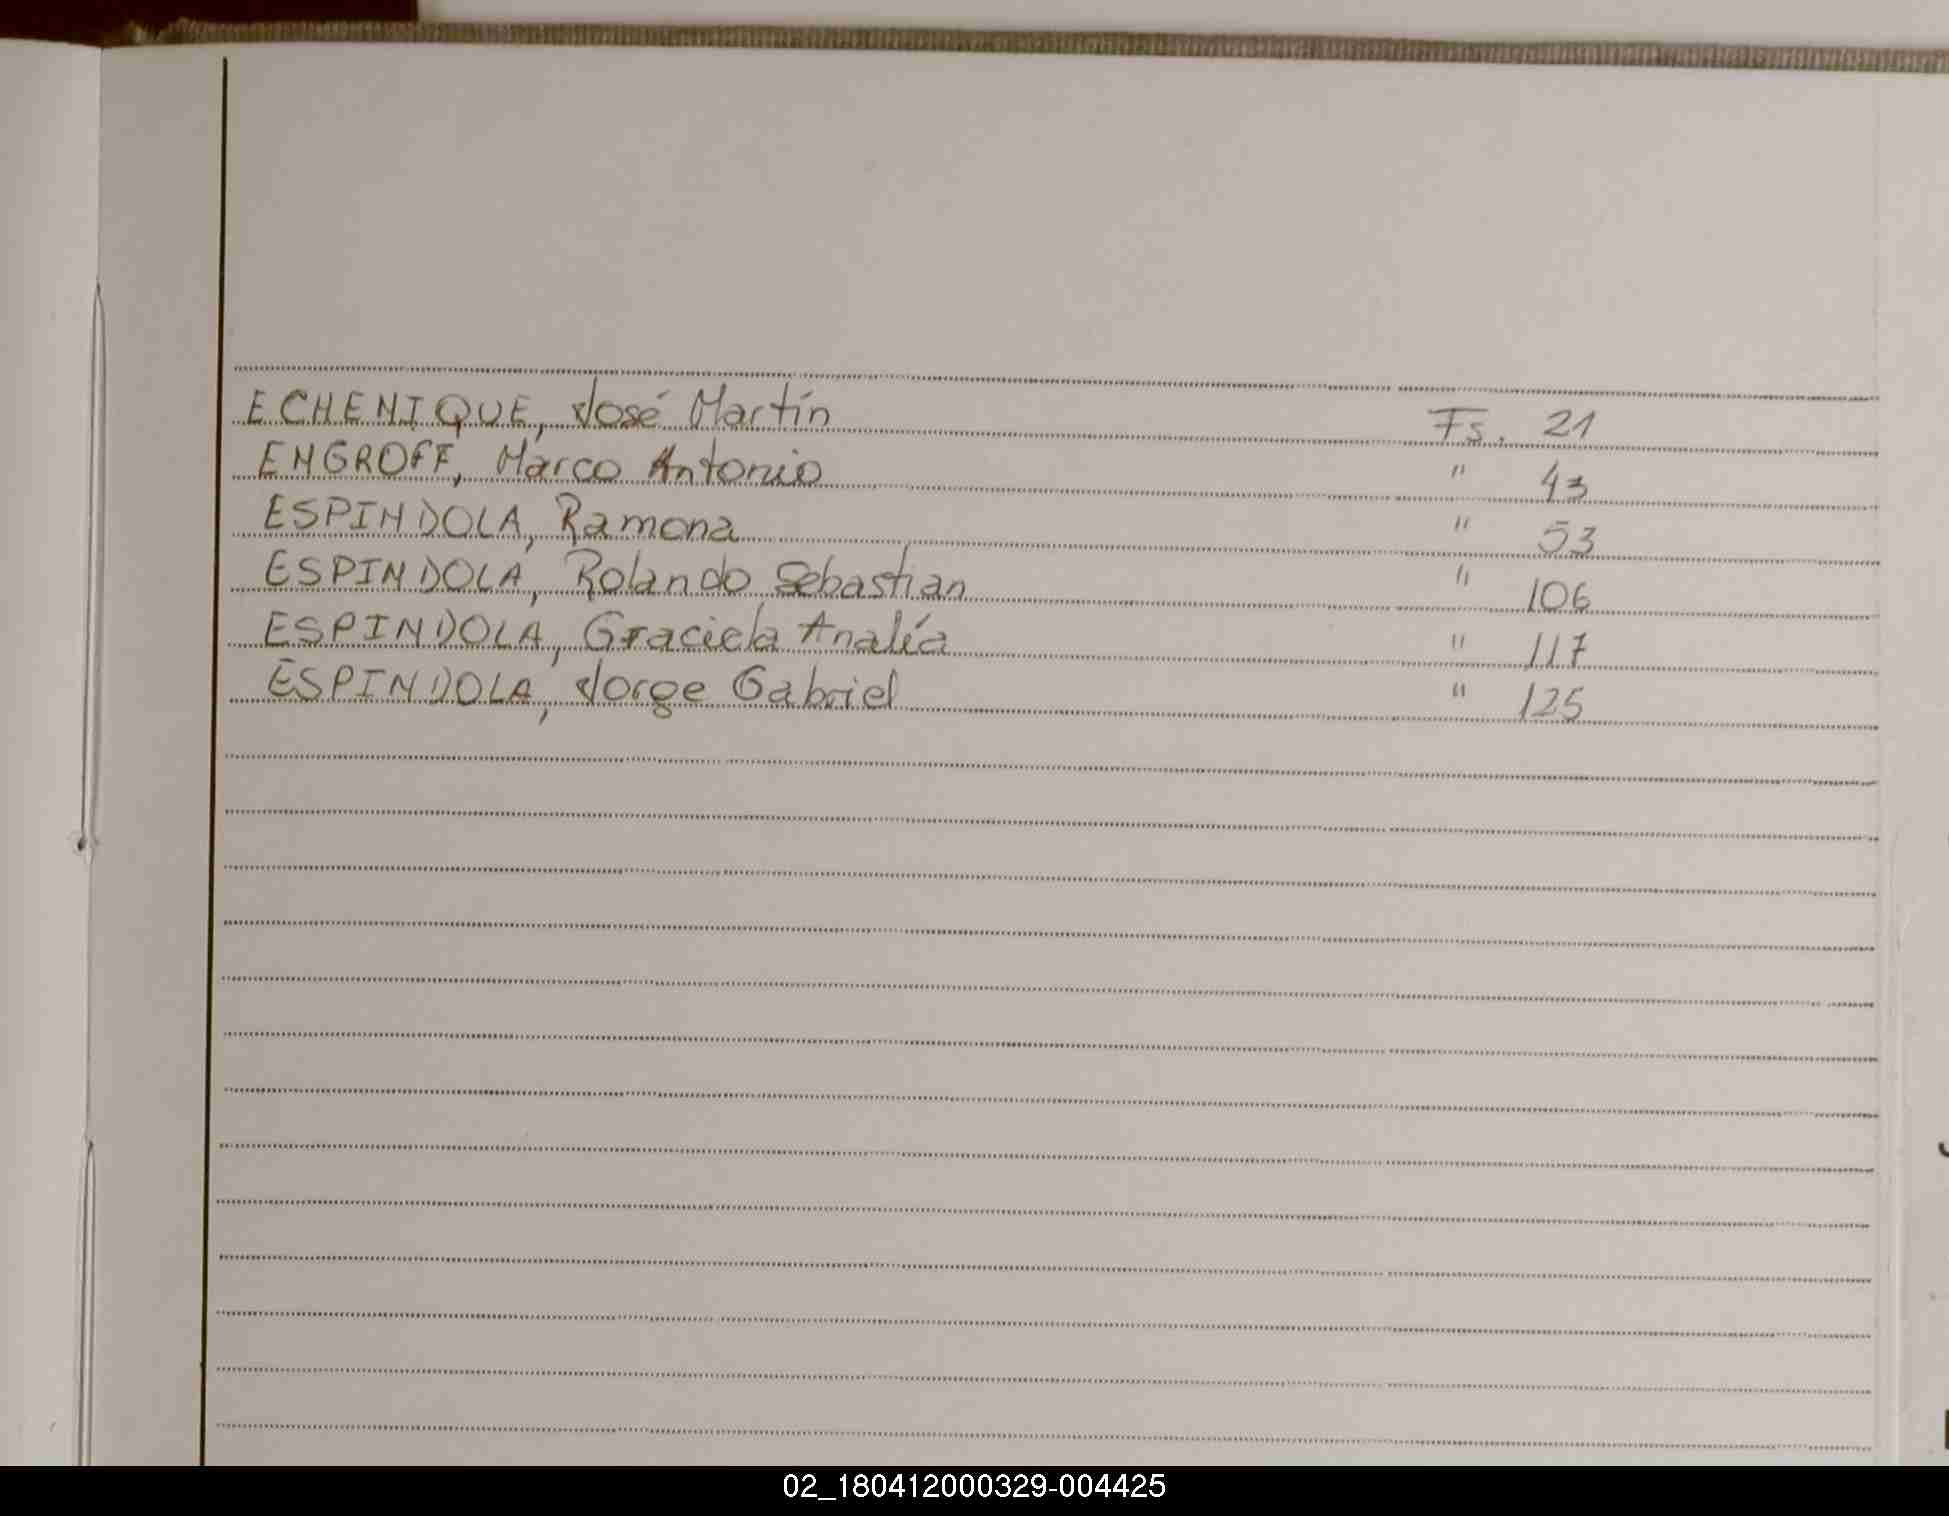 ECHENIQUE, José Martín Fs. 21
ENGROFF, Marco Antonio " 43
ESPINDOLA, Ramona " 53
ESPINDOLA, Rolando Sebastian " 106
ESPINDOLA, Graciela Analía " 117
ESPINDOLA, Jorge Gabriel " 125
02_180412000329-004425